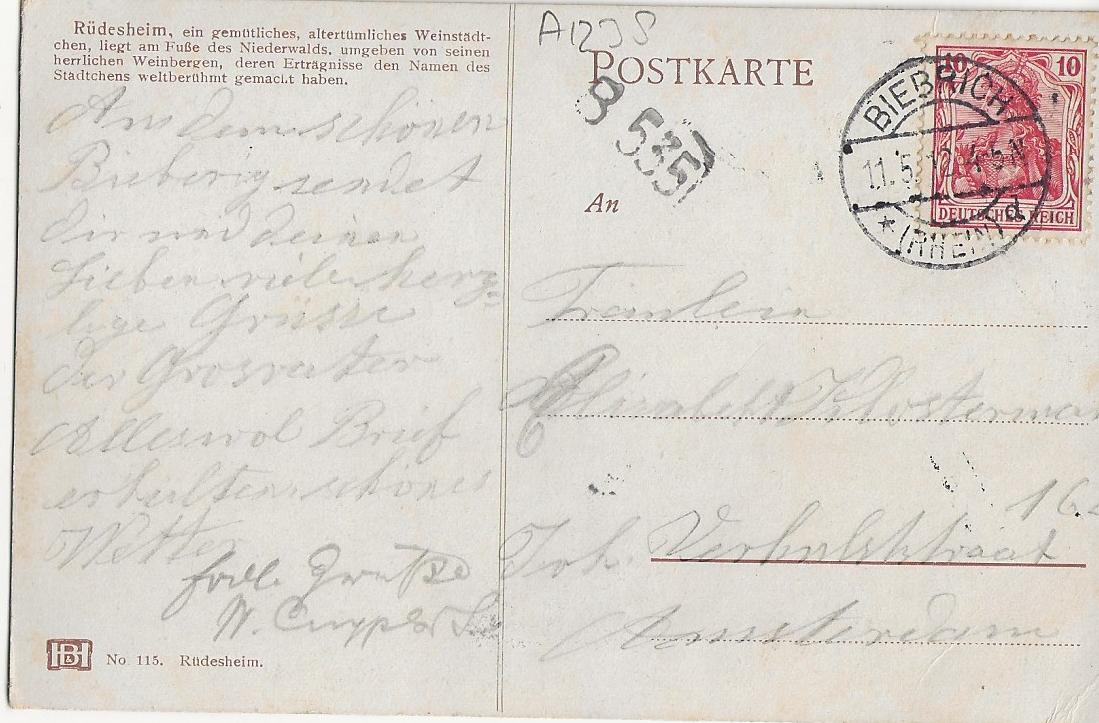 Rüdesheim, ein gemütliches, altertümliches Weinstädt-
chen, liegt am Fuße des Niederwalds, umgeben von seinen
herrlichen Weinbergen, deren Erträgnisse den Namen des
Städtchens weltberühmt gemacht haben.
Aus dem schönen
Bieberig sendet
Dir und deinen
Lieben viele herz=
lige Grüsse
der Grosvater
Alleswol Brief
erhalten schönes
Wetter
W. Cuypers
HB&
No 115. Rüdesheim.
A1238
POSTKARTE
B 535
10 10
DEUTSCHES REICH
BIEBRICH
11.5.
* (RHEIN) d
An
Fräulein
Elisabeth Klosterman
Joh. Verhulststraat 16
Amsterdam